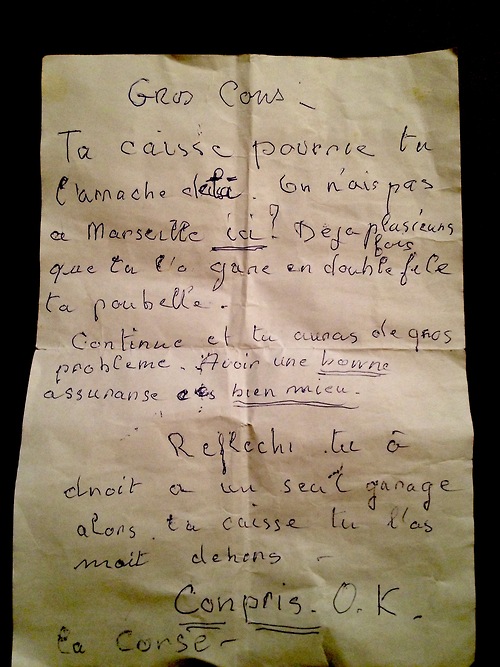 Gros Cons -
Ta caisse pourrie tu
l'amache On n'ais pas
a Marseille ici ? Deja plusieurs
fois
que tu l'a gare en double file
ta poubelle -
Continue et tu auras de gros
probleme. Avoir une bonne
assuranse es bien mieu -
Reflechi tu à
droit a un seul garage
alors ta caisse tu l'as
mait dehors -
Conpris - O.K -
la Corse -